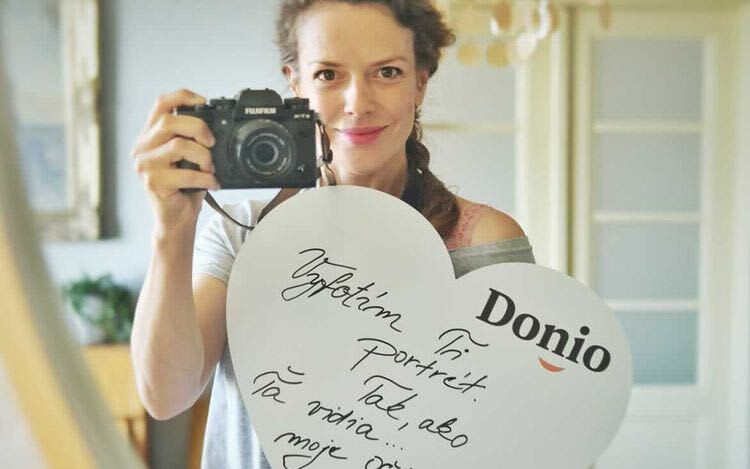 FUJIFILM
X-T3
Donio
Vyfotím
Ti
portrét.
Tak, ako
Ťa vidia...
moje